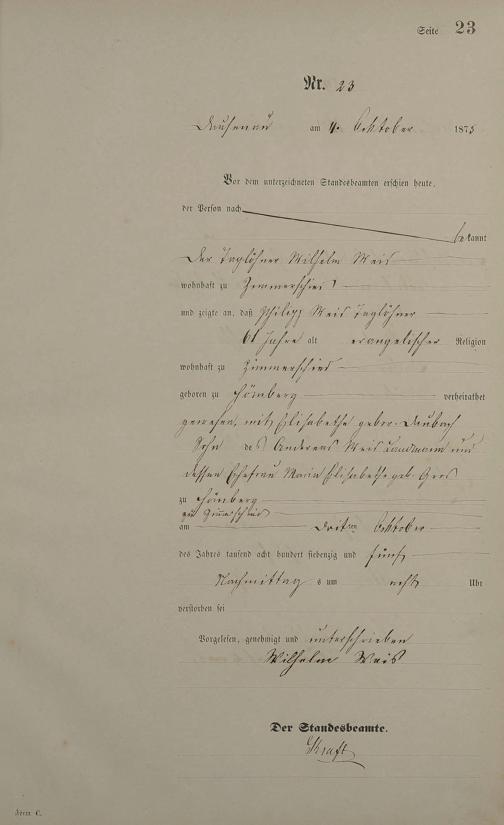 Seite 23
Nr. 23
Dausenau am 4. Oktober 1875
Vor dem unterzeichneten Standesbeamten erschien heute,
der Person nach
bekannt
der Taglöhner Wilhelm Weis
wohnhaft zu Zimmerschied
und zeigte an, daß Philipp Weis Taglöhner
61 Jahre alt evangelischer Religion
wohnhaft zu Zimmerschied
geboren zu Hömberg verheirathet
gewesen, mit Elisabethe geber. Daubach
Sohn des Andereas Weis Landmann und
dessen Ehefrau Maria Elisabethe geb.
zu Hömberg
zu Zimmerschied
am dritten Oktober
des Jahres tausend acht hundert siebenzig und fünf
Nachmittag s um acht Uhr
verstorben sei
Vorgelesen, genehmigt und unterschrieben
Wilhelm Weis
Der Standesbeamte.
Kraft
Form C.